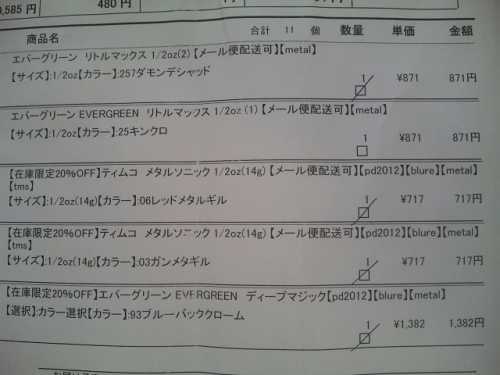 0,585 円
480 円
円
商品名 合計 11 個 数量 単価 金額
エバーグリーン リトルマックス 1/2oz(2)【メール便配送可】【metal】
【サイズ】:1/2oz【カラー】:257ダモンデシャッド 1 ¥871 871円
エバーグリーン EVERGREEN リトルマックス 1/2oz (1)【メール便配送可】【metal】
【サイズ】:1/2oz【カラー】:25キンクロ 1 ¥871 871円
【在庫限定20%OFF】ティムコ メタルソニック 1/2oz(14g)【メール便配送可】【pd2012】【blure】【metal】
【tms】
【サイズ】:1/2oz(14g)【カラー】:06レッドメタルギル 1 ¥717 717円
【在庫限定20%OFF】ティムコ メタルソニック 1/2oz(14g)【メール便配送可】【pd2012】【blure】【metal】
【tms】
【サイズ】:1/2oz(14g)【カラー】:03ガンメタギル 1 ¥717 717円
【在庫限定20%OFF】エバーグリーン EVERGREEN ディープマジック【pd2012】【blure】【metal】
【選択】:カラー選択【カラー】:93ブルーバッククローム 1 ¥1,382 1,382円